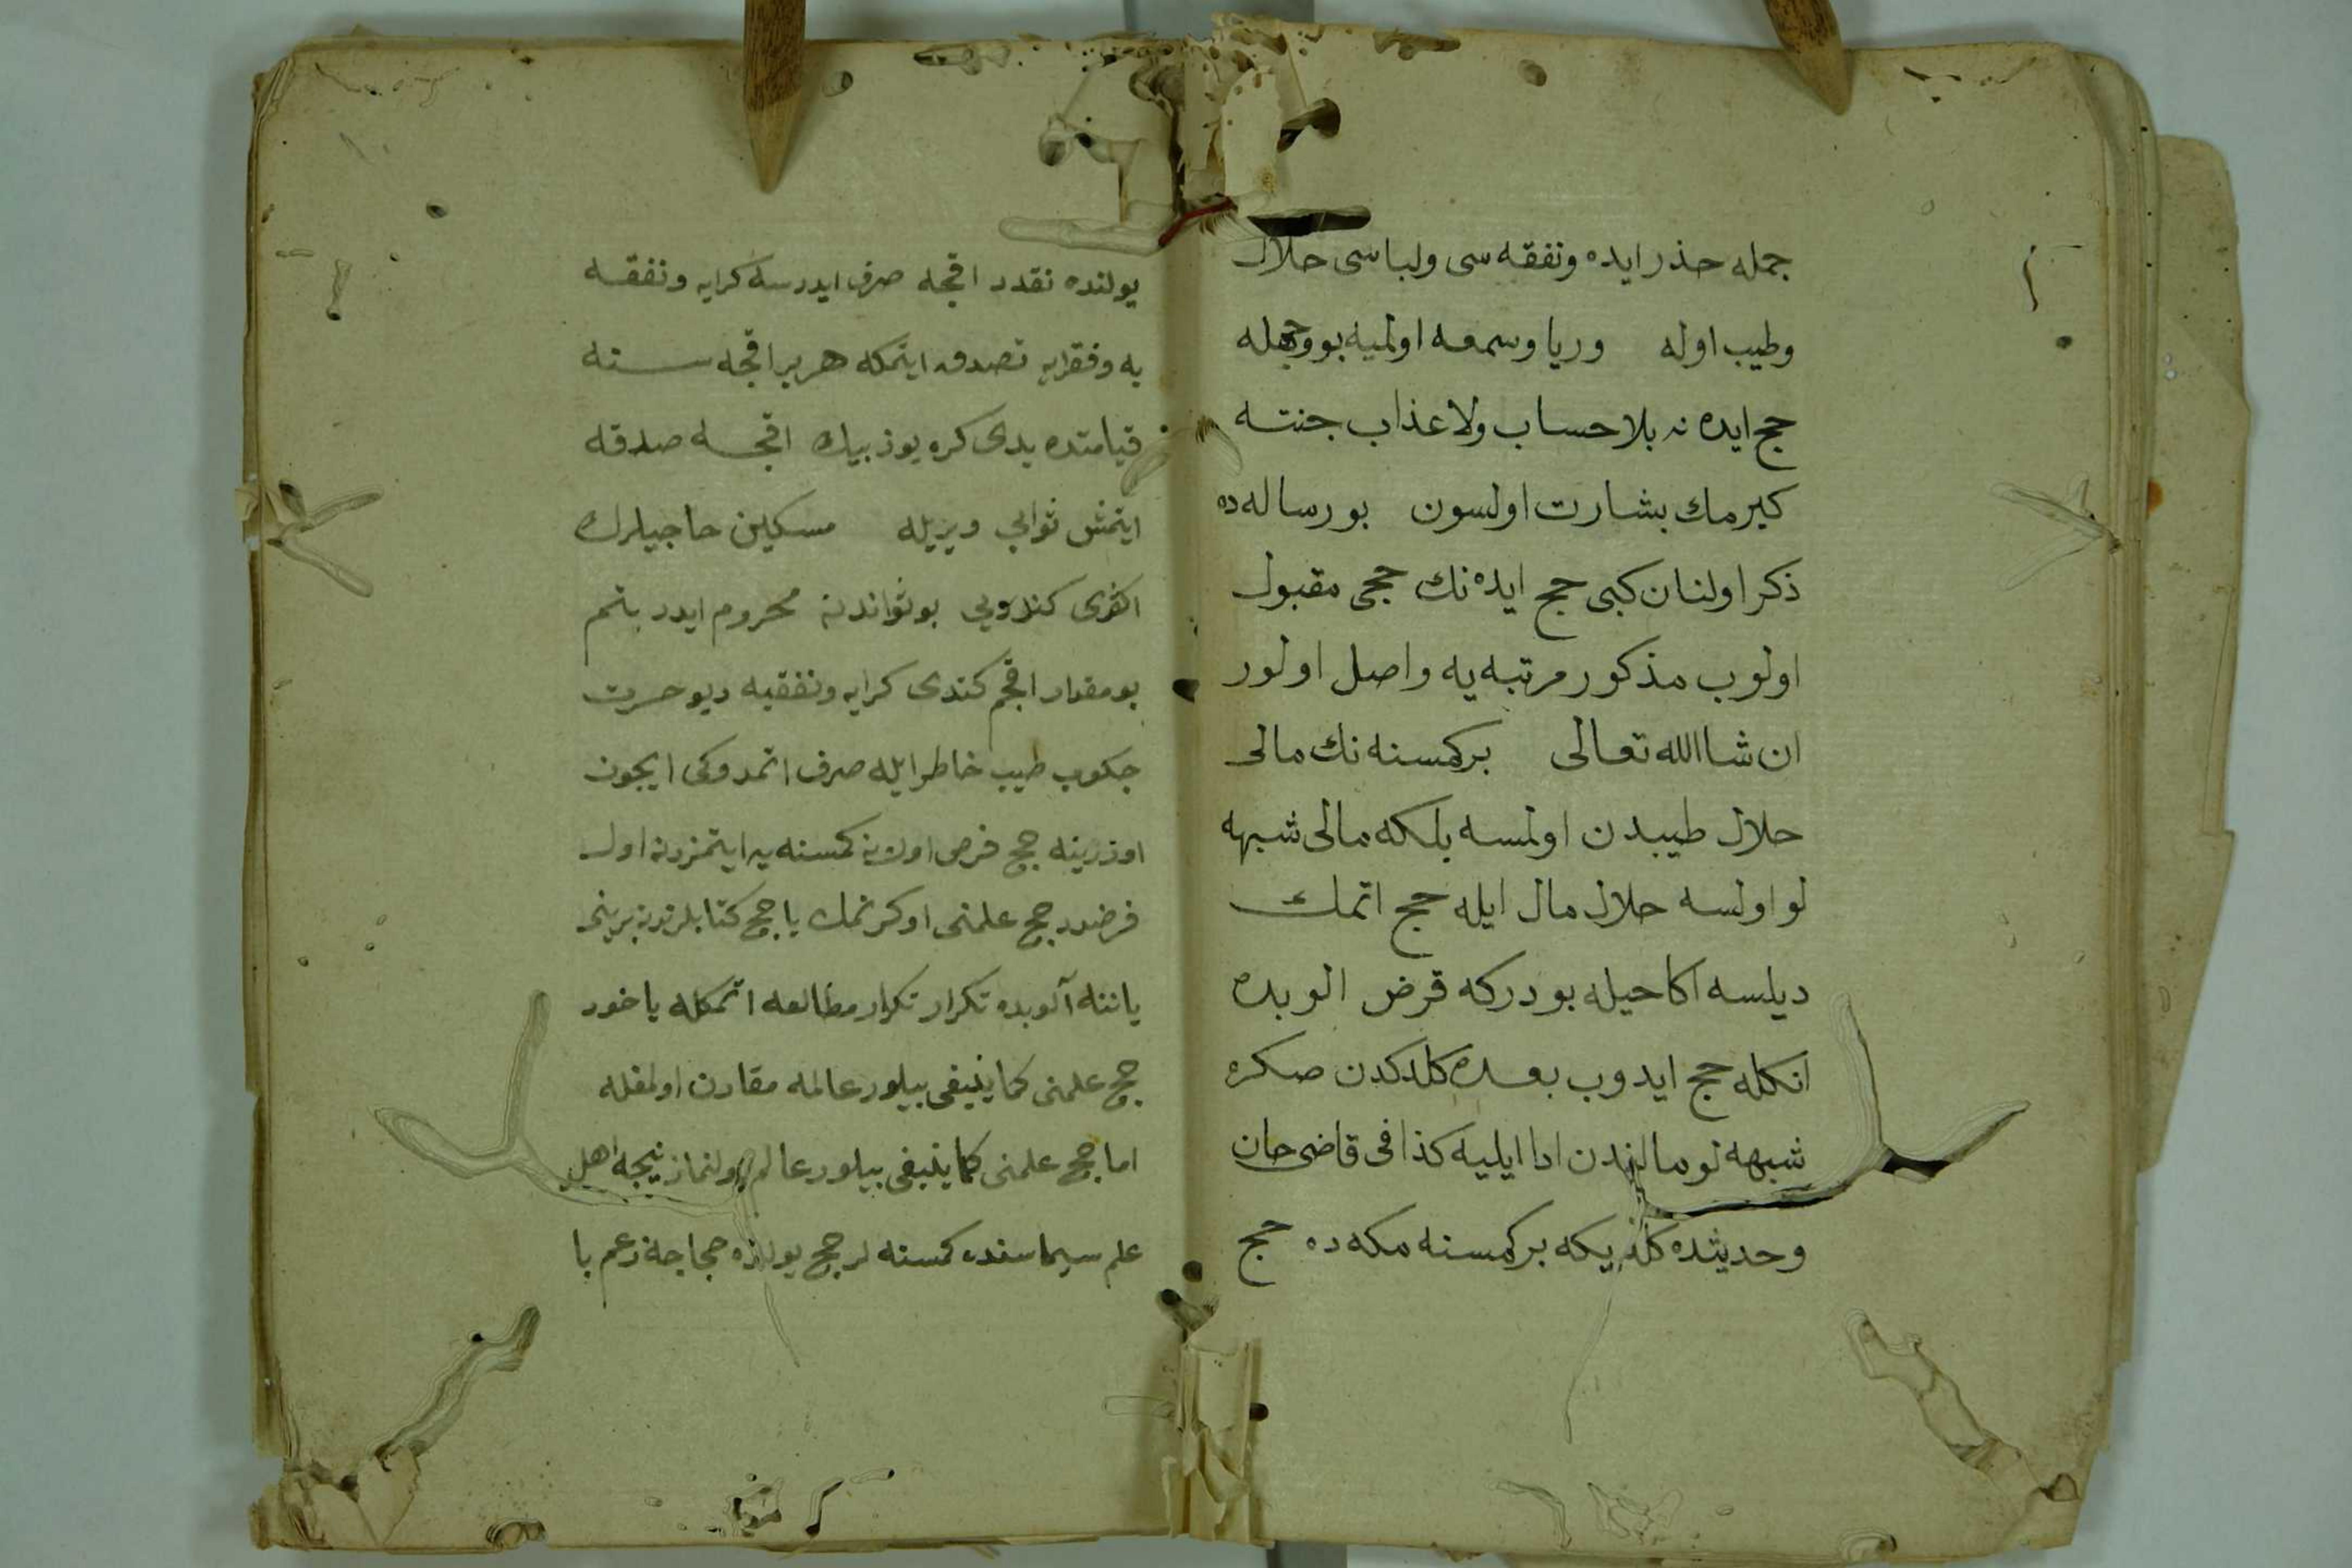 جمله حذر ايده ونفقه سى ولباسى حلال
وطيب اوله وريا وسمعه اولميه بو وجهله
حج ايده نه بلا حساب ولا عذاب جنته
كيرمك بشارت اولسون بو رساله ده
ذكر اولنان كبى حج ايده نك حجى مقبول
اولوب مذكور مرتبه يه واصل اولور
ان شاالله تعالى بر كمسنه نك مالى
حلال طيبدن اولمسه بلكه مالى شبهه
لو اولسه حلال مال ايله حج اتمك
ديلسه اكا حيله بودركه قرض الوبده
انكله حج ايدوب بعده كلدكدن صكره
شبهه لو مالندن ادا ايليه كذا فى قاضى خان
وحديثده كلديكه بر كمسنه مكه ده حج
يولنده نقدر اقچه صرف ايدرسه كرايه ونفقه
يه وفقرايه تصدق ايتمكه هر بر اقچه سنه
قيامتده يدى كره يوز بيك اقچه صدقه
ايتمش ثوابى ويريله مسكين حاجيلرك
اكثرى كندويى بو ثوابدن محروم ايدر بنم
بو مقدار اقچم كندى كرايه ونفقيه ديو حسرت
چكوب طيب خاطر ايله صرف اتمدوكى ايچون
اوزرينه حج فرض اولان كمسنه يه ايتمزدن اول
فرضدر حج علمنى اوكرنمك يا حج كتابلرندن برينى
ياننه آلوبده تكرار تكرار مطالعه اتمكله ياخود
حج علمنى كما ينبغى بيلور عالمه مقارن اولمغله
اما حج علمنى كما ينبغى بيلور عالم بولنماز نيجه اهل
علم سيماسنده كمسنه لر حج يولنده حجاجه زعم با